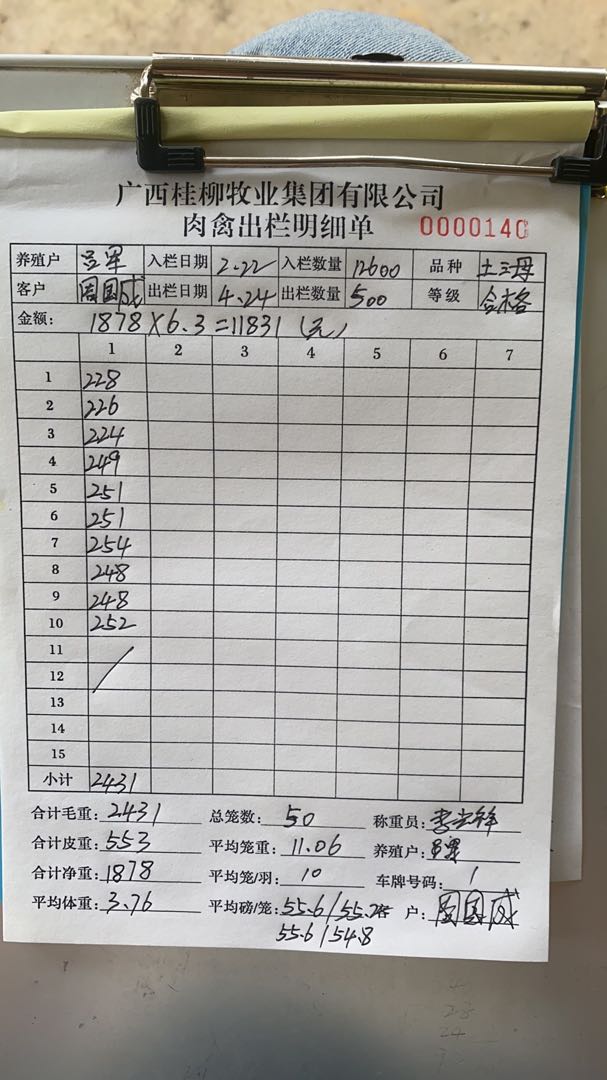 广西桂柳牧业集团有限公司
肉禽出栏明细单 0000140
养殖户 入栏日期 2.22 入栏数量 12600 品种 土三母
客户 周国威 出栏日期 4.24 出栏数量 500 等级 合格
金额: 1878×6.3=11831(元)
1 2 3 4 5 6 7
1 228
2 226
3 224
4 249
5 251
6 251
7 254
8 248
9 248
10 252
11
12
13
14
15
小计 2431
合计毛重: 2431 总笼数: 50 称重员:
合计皮重: 553 平均笼重: 11.06 养殖户:
合计净重: 1878 平均笼/羽: 10 车牌号码: /
平均体重: 3.76 平均磅/笼: 55.6/55.2 户: 周国威
55.6/54.8